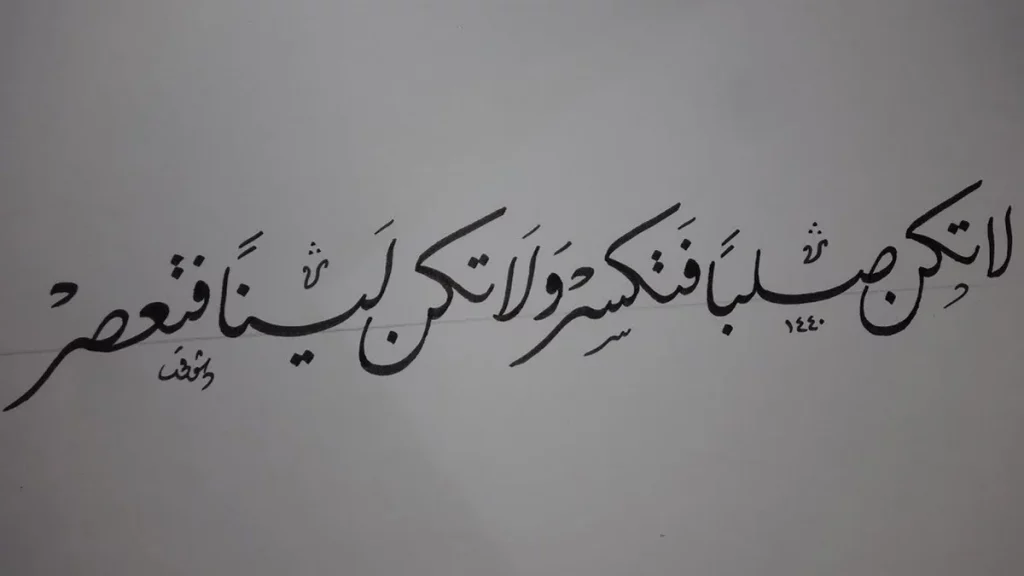 لا تكن صلبًا فَتكسرْ وَلَا تكن لَينًا فتعصرْ
١٤٤٠